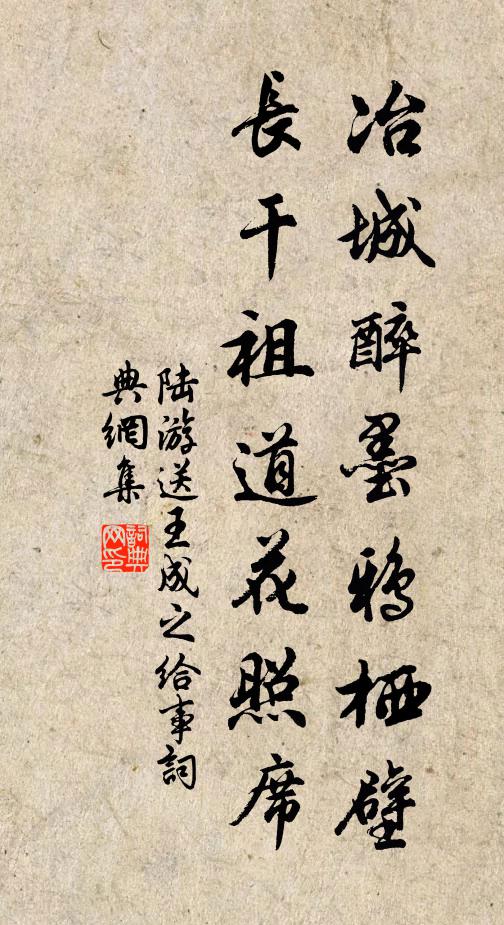 冶城醉墨鴉栖壁
長干祖道花照席
陆游送王成之给事詞
典網集
詞典
网印